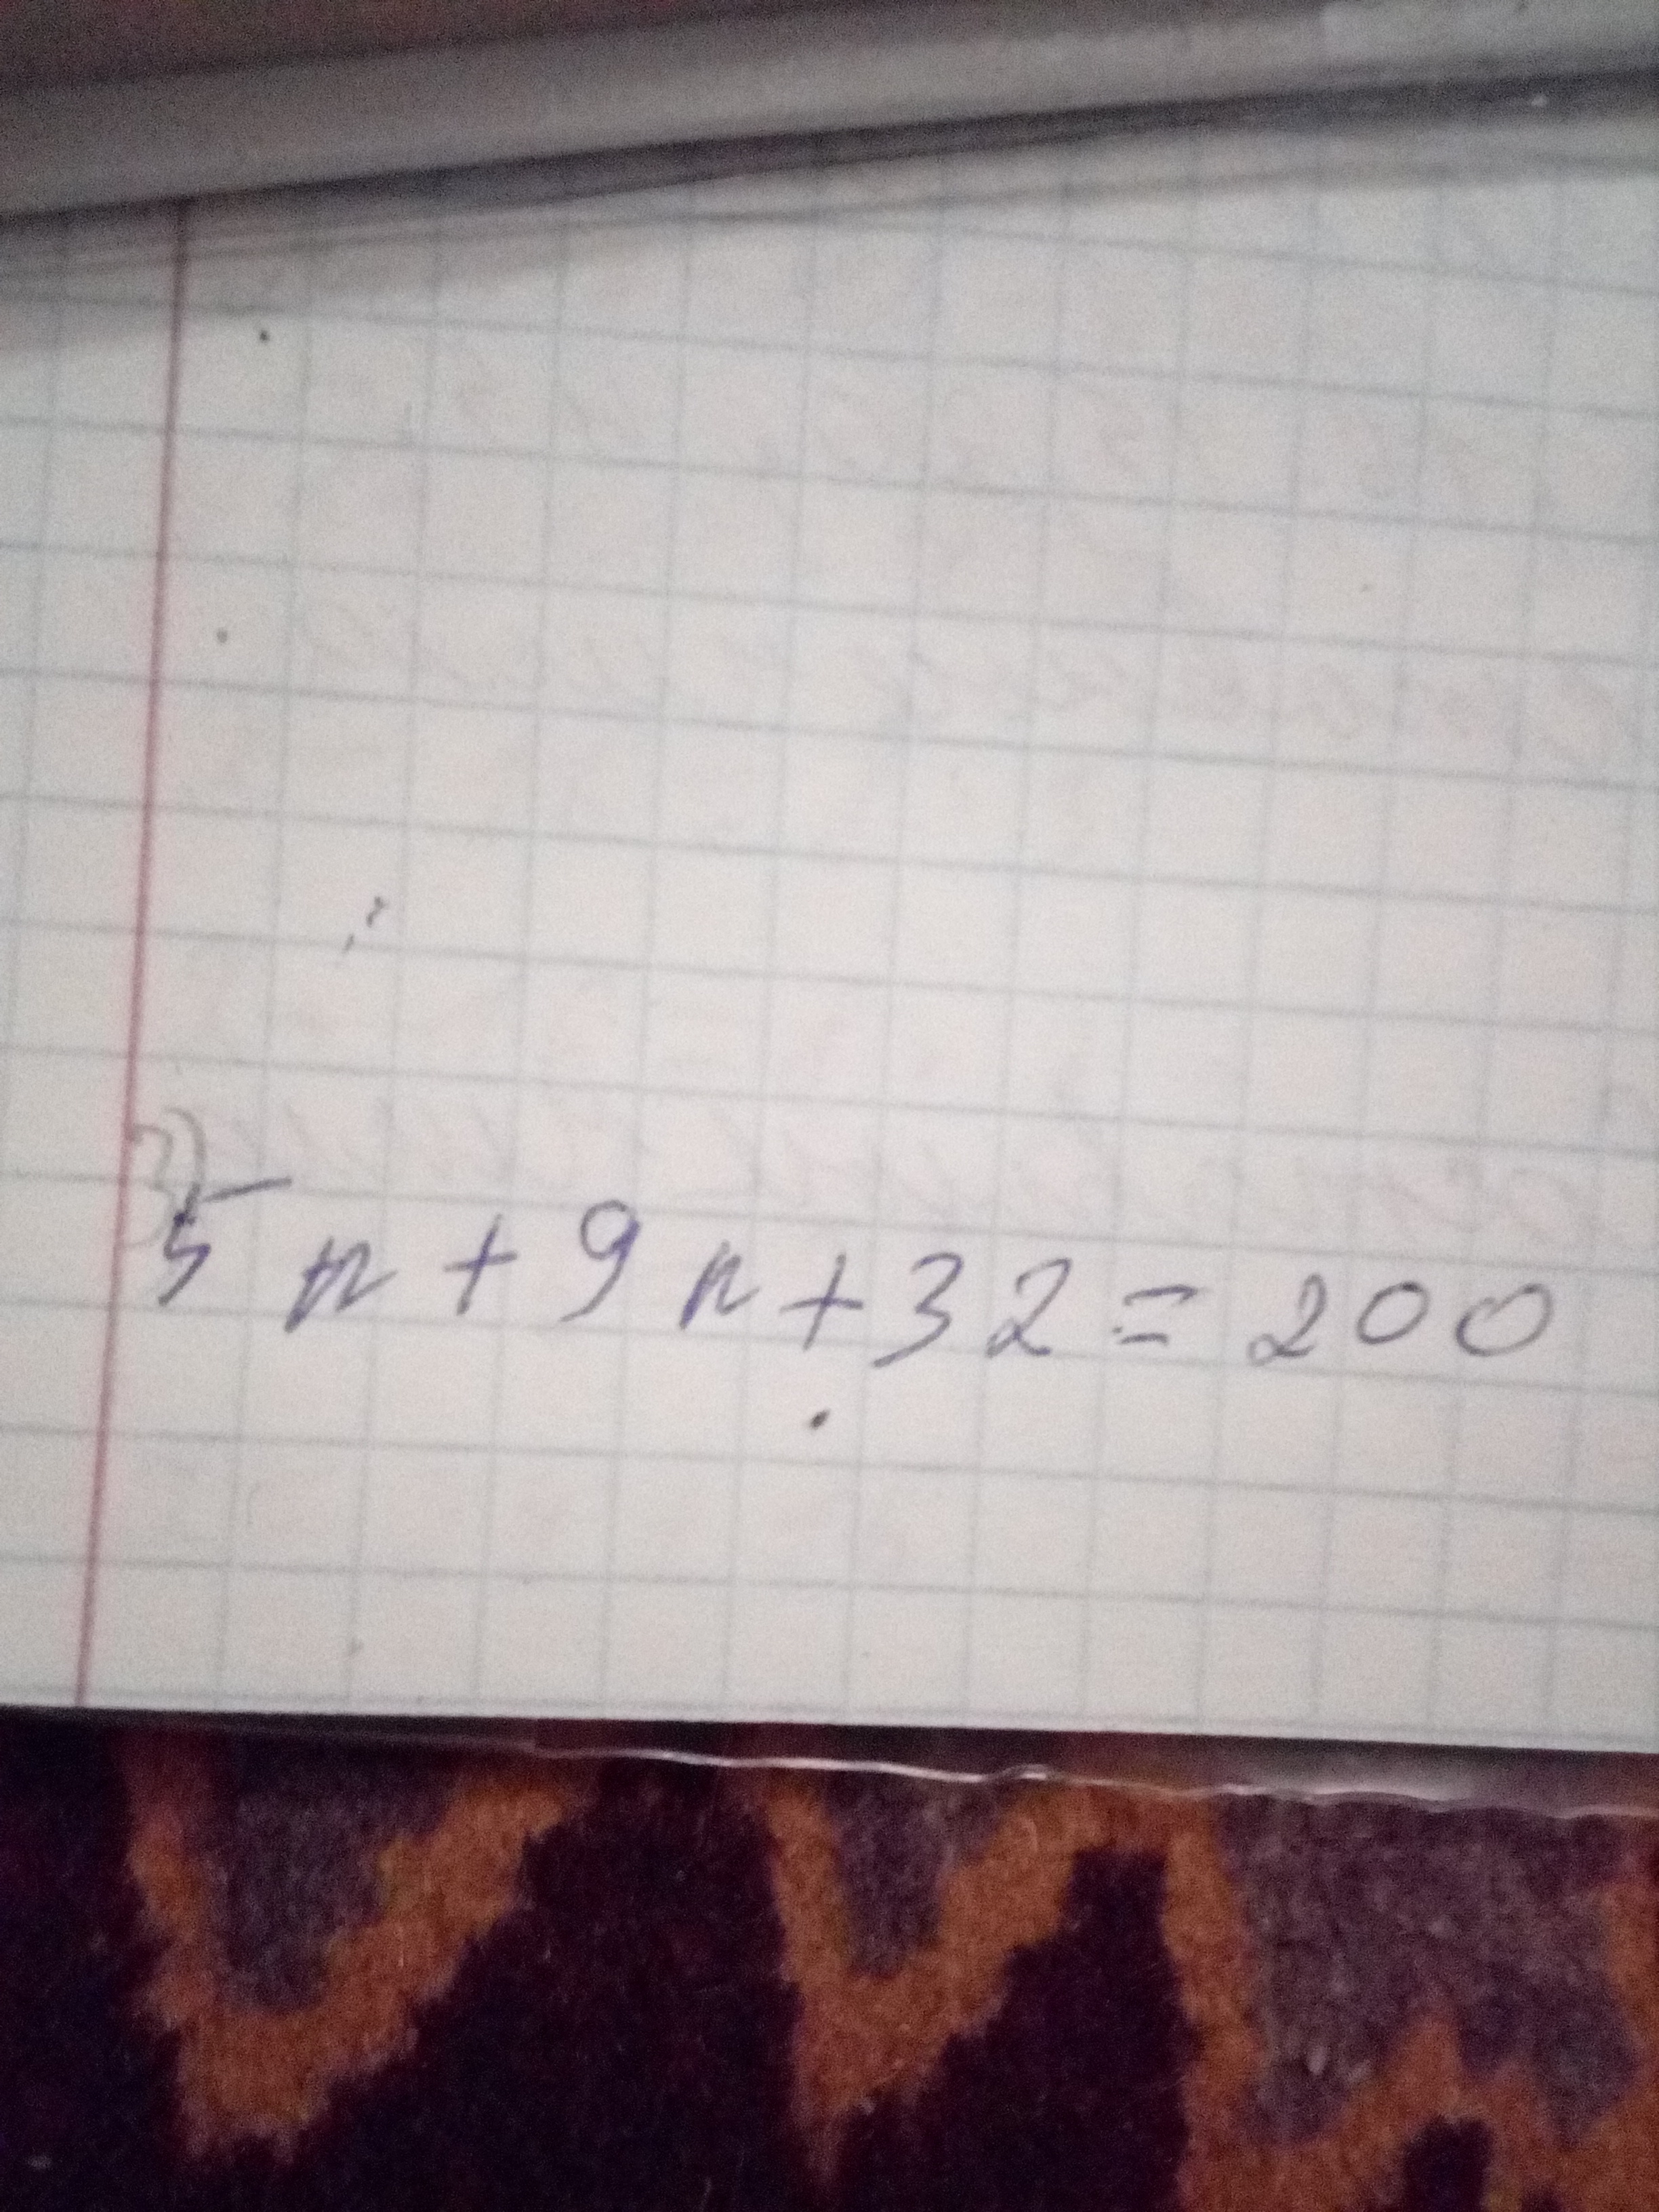 3)
5n+9n+32=200